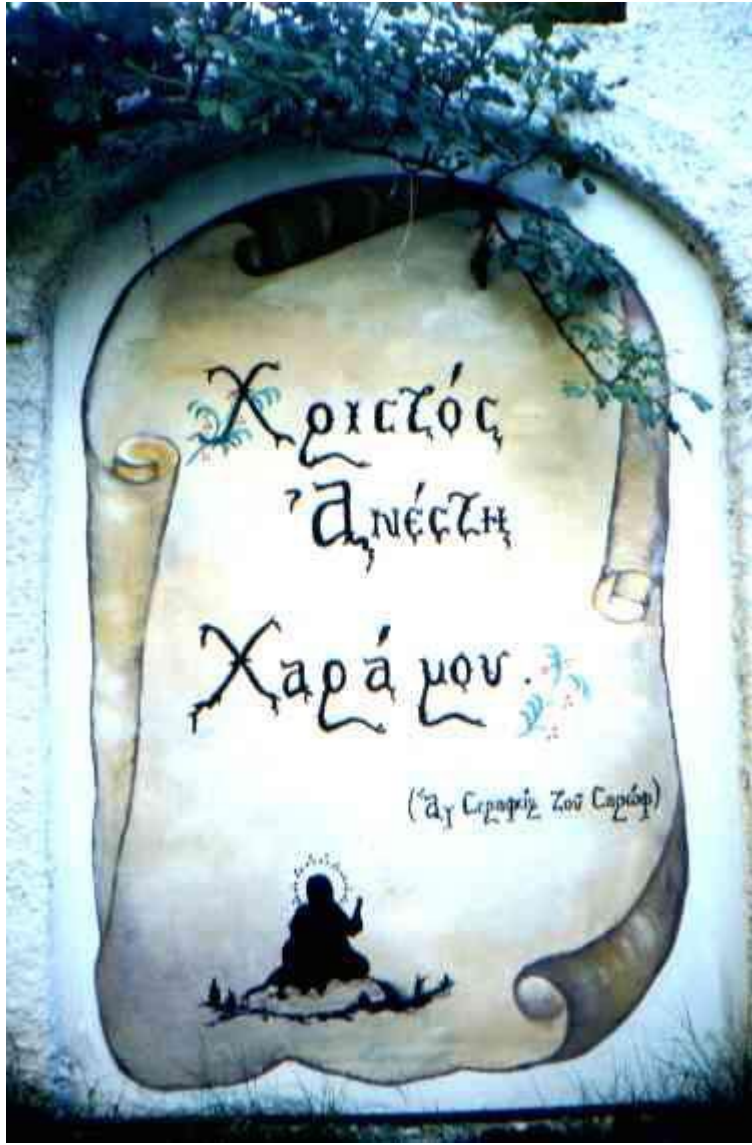 Χριστός
Ἀνέστη
Χαρά μου.
(Ἁγ Σεραφείμ τοῦ Σαρώφ)